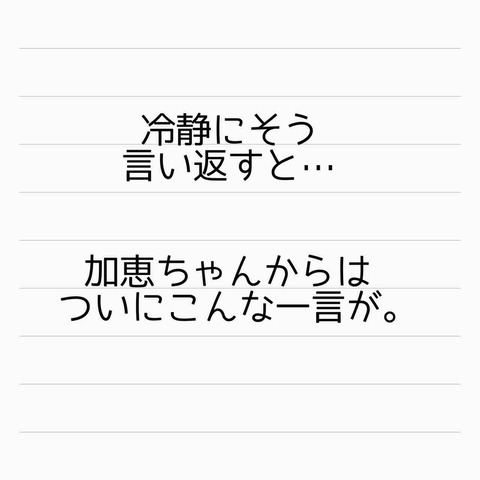 冷静にそう
言い返すと…
加恵ちゃんからは
ついにこんな一言が。